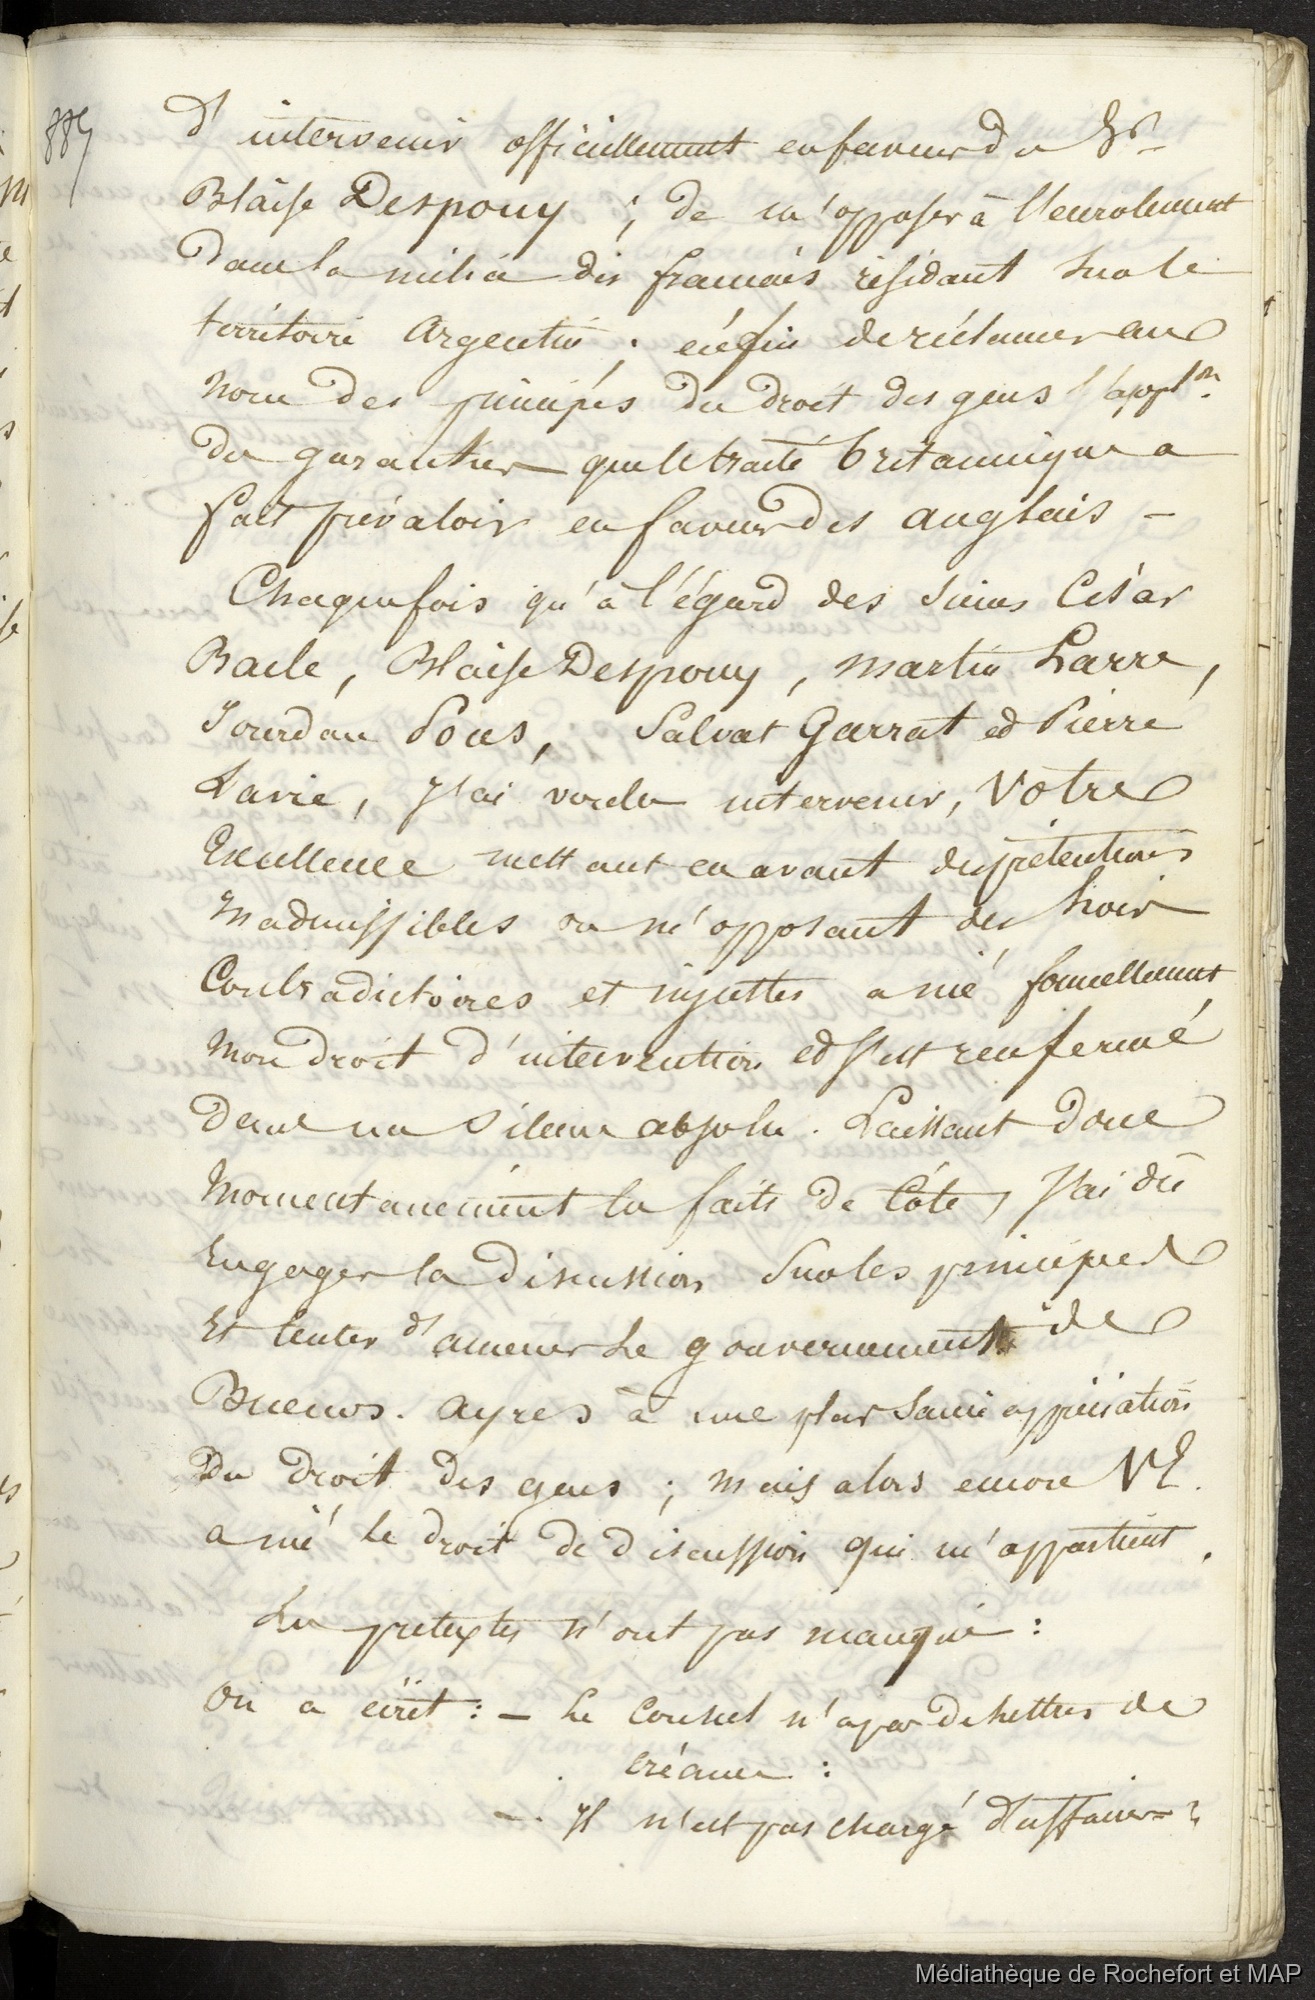 d'intervenir officiellement en faveur du Sr
Blaise Despouy ; de m'opposer à l'enrolement
dans la milice des français résidant sur le
territoire argentin ; enfin de réclamer au
nom des principes du droit des gens l'applon
des garanties que le traité britannique a
fait prévaloir en faveur des anglais -
Chaque fois qu'à l'égard des sieurs César
Bacle, Blaise Despouy, Martin Larre,
Jourdan Pons, Salvat Garrat et Pierre
Lavie, j'ai voulu intervenir, Votre
Excellence mettant en avant des prétentions
inadmissibles ou m'opposant des
contradictoires et injustes a nié formellement
mon droit d'intervention et s'est renfermé
dans un silence absolu. Laissant donc
momentanément les faits de côté, j'ai dû
engager la discussion sur les principes
et tenter d'amener le gouvernement de
Buenos. ayres à une plus saine appréciation
du droit des gens ; mais alors encore VE.
a nié le droit de discussion qui m'appartient.
Les pretextes n'ont pas manqué :
on a écrit : - Le Consul n'a pas de lettres de
créance :
- Il n'est pas chargé d'affaires
Médiathèque de Rochefort et MAP